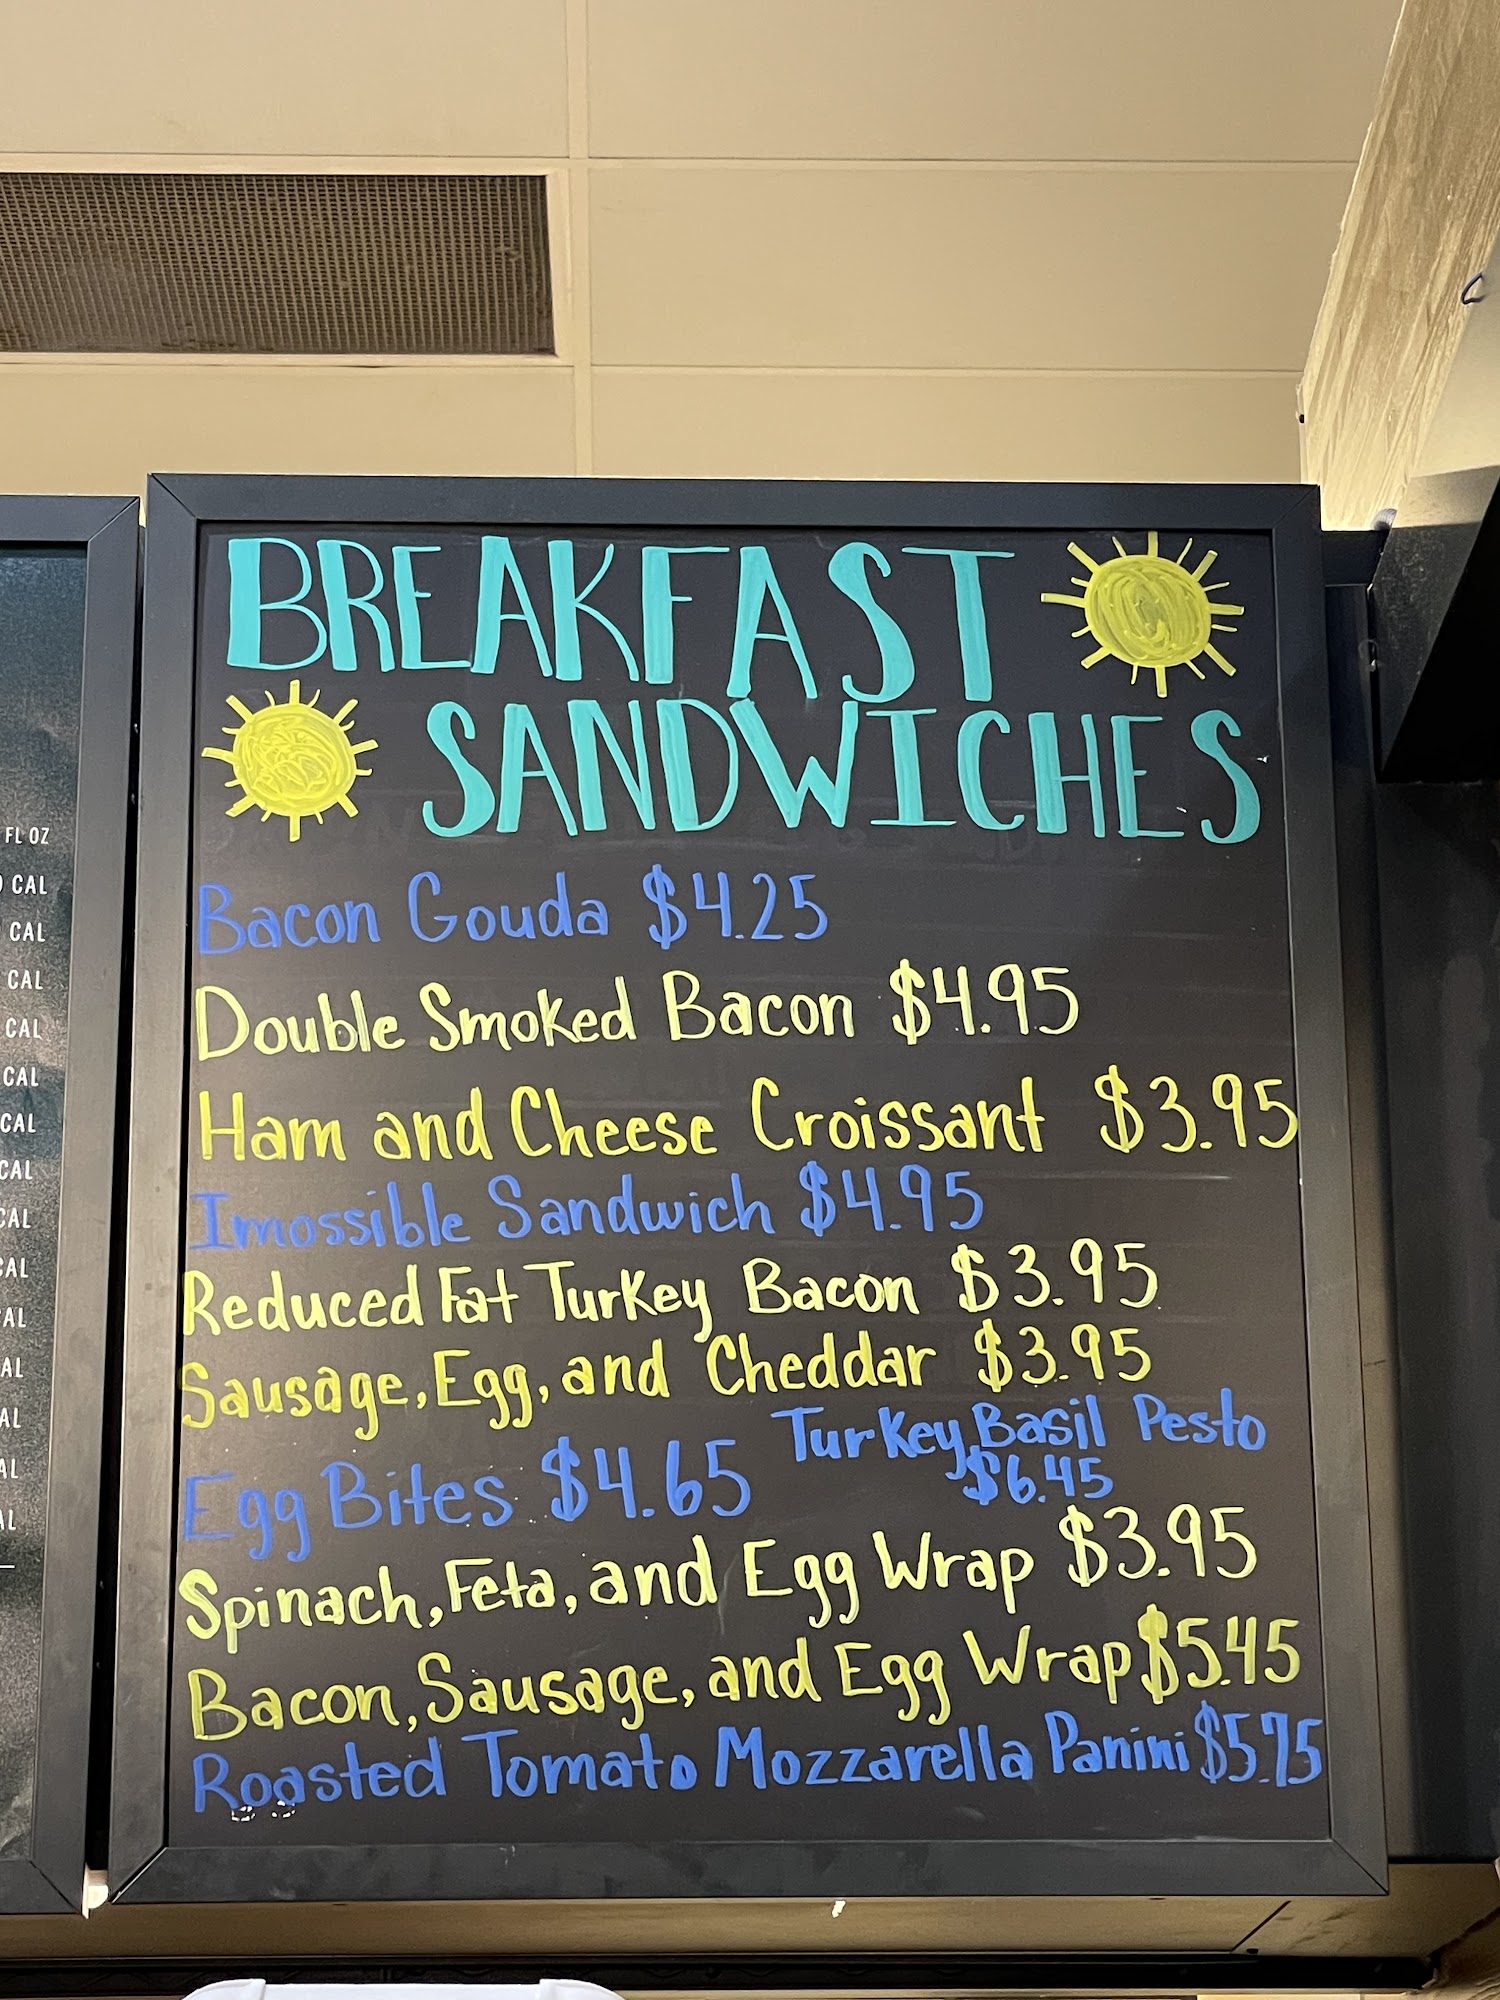 BREAKFAST
SANDWICHES
Bacon Gouda $4.25
Double Smoked Bacon $4.95
Ham and Cheese Croissant $3.95
Imossible Sandwich $4.95
Reduced Fat Turkey Bacon $3.95
Sausage, Egg, and Cheddar $3.95
Egg Bites $4.65
Turkey Basil Pesto
$6.45
Spinach, Feta, and Egg Wrap $3.95
Bacon, Sausage, and Egg Wrap $5.45
Roasted Tomato Mozzarella Panini $5.75
FL OZ
CAL
CAL
CAL
CAL
CAL
CAL
CAL
CAL
CAL
CAL
AL
AL
AL
AL